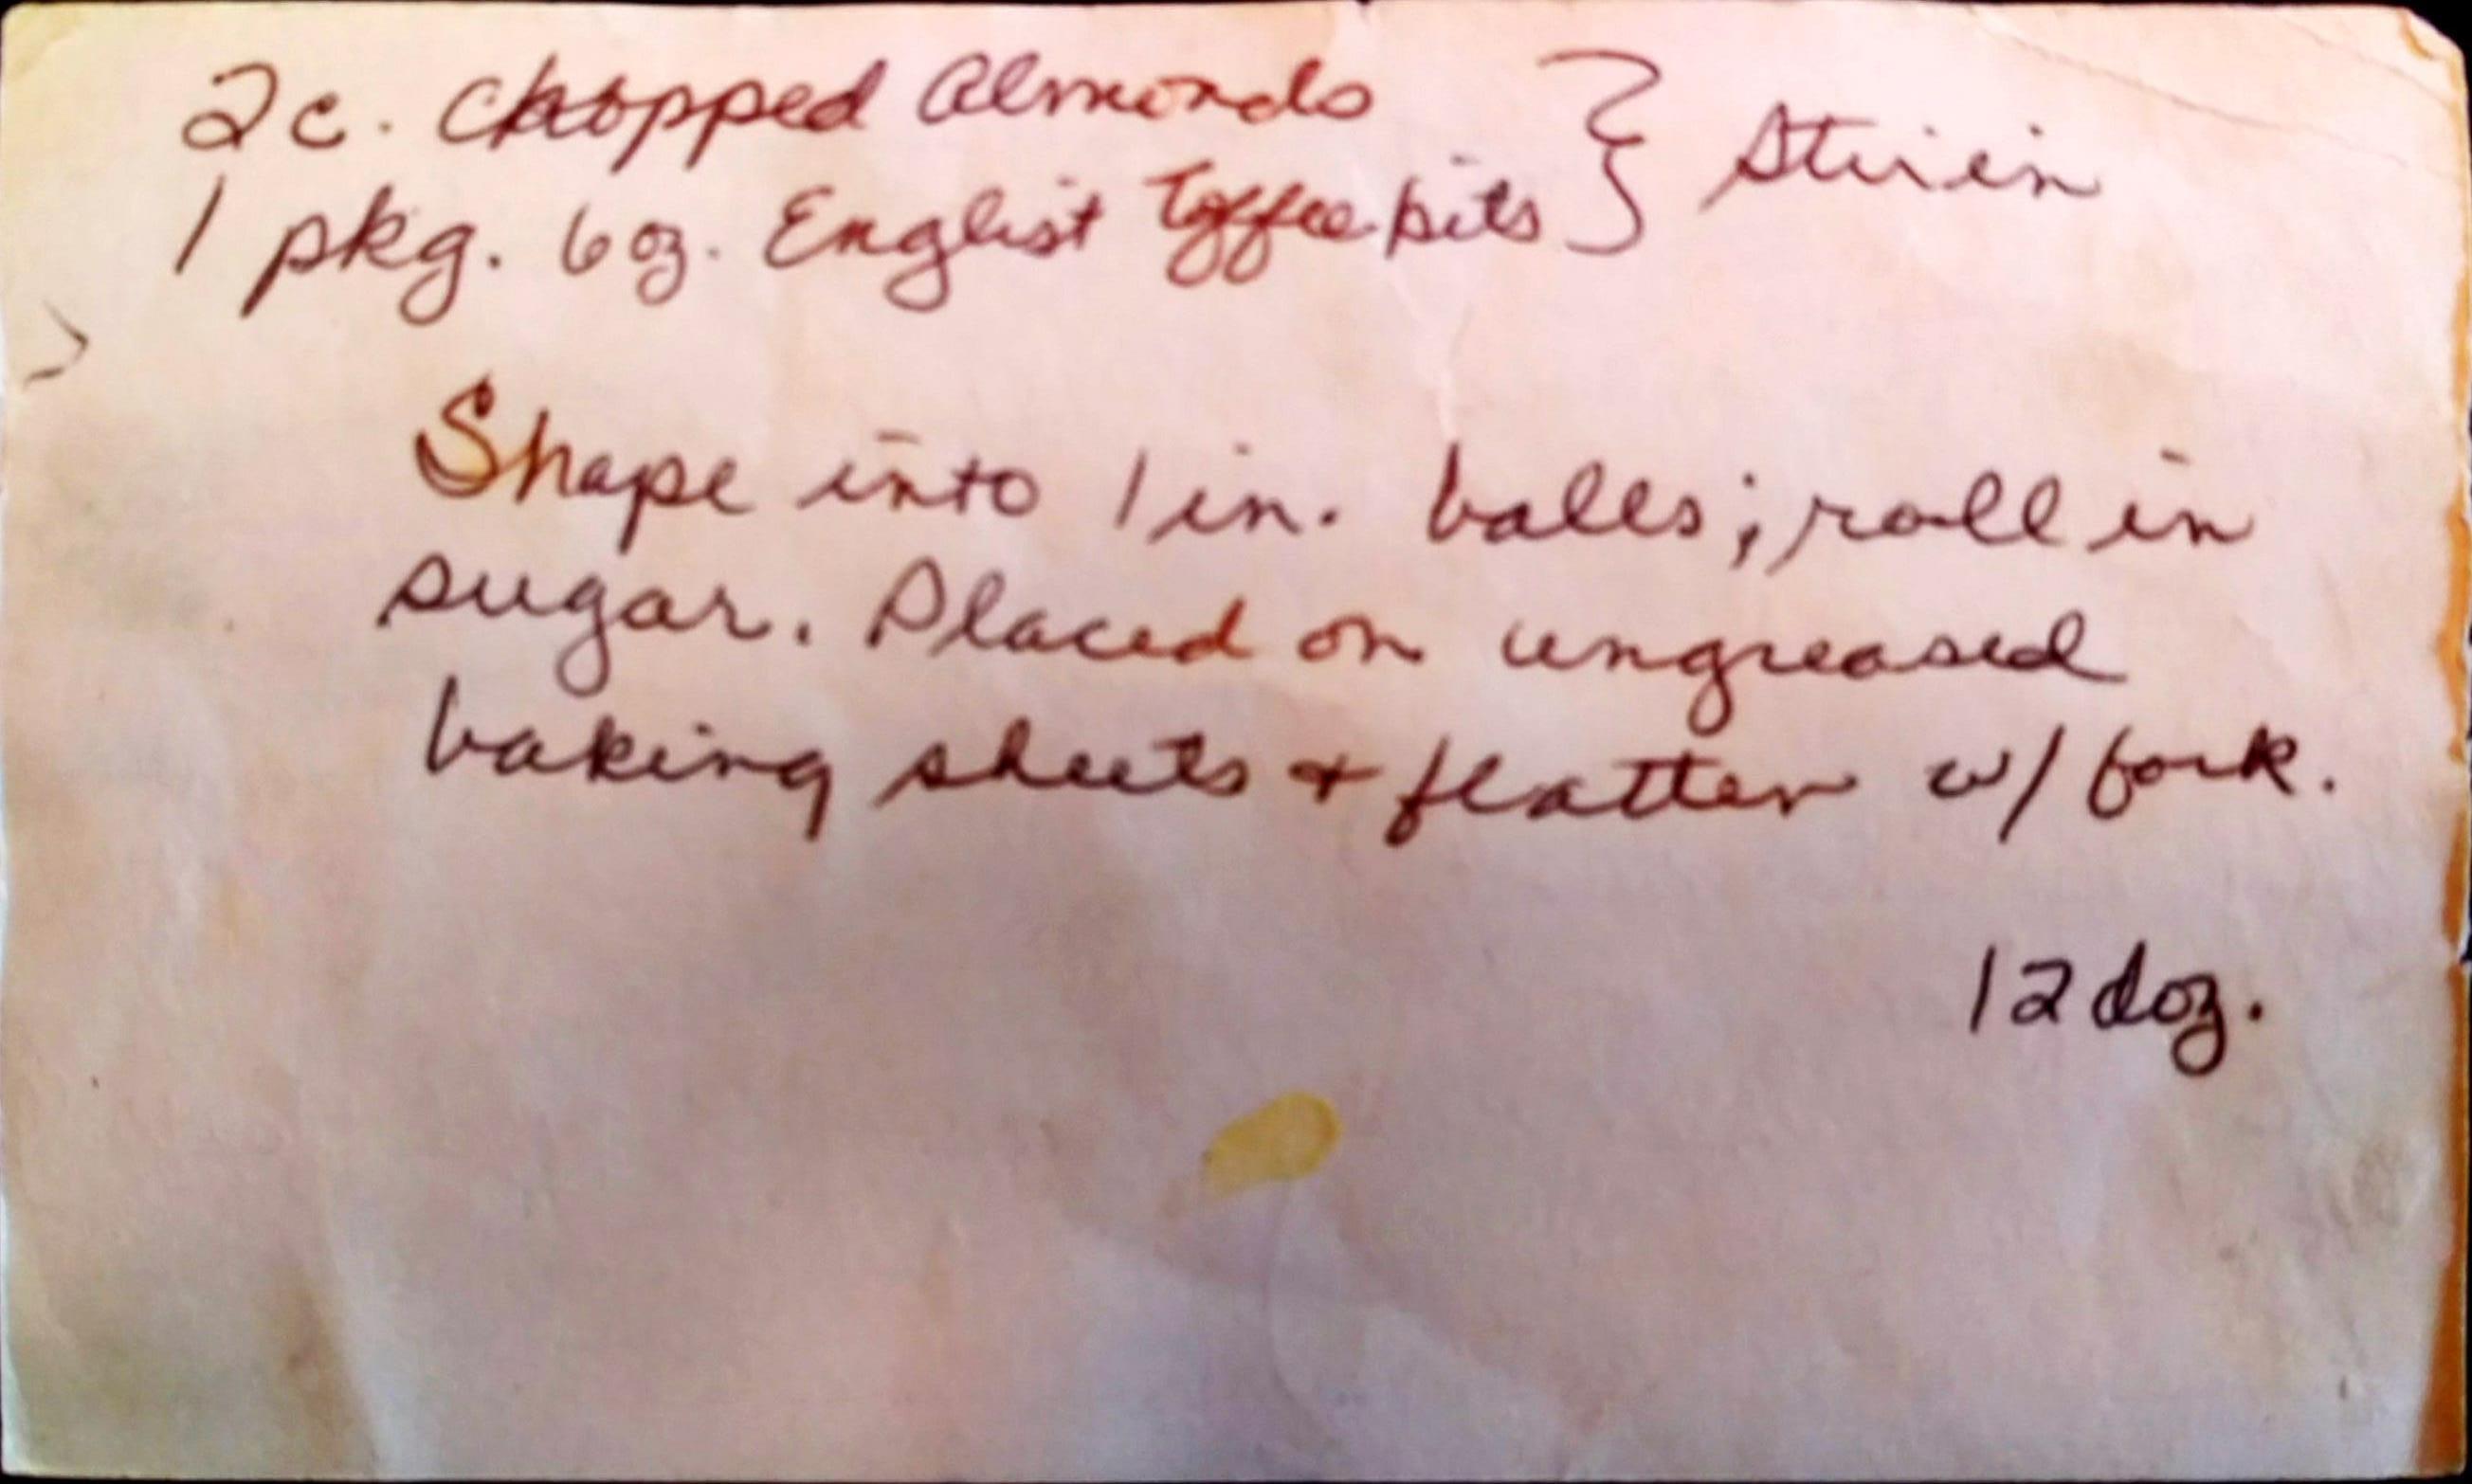 2c. Chopped Almonds } Stir in
1 pkg. 6 oz. Englist Toffee bits
Shape into 1 in. balls; roll in
sugar. Placed on ungreased
baking sheets + flatten w/ fork.
12 doz.